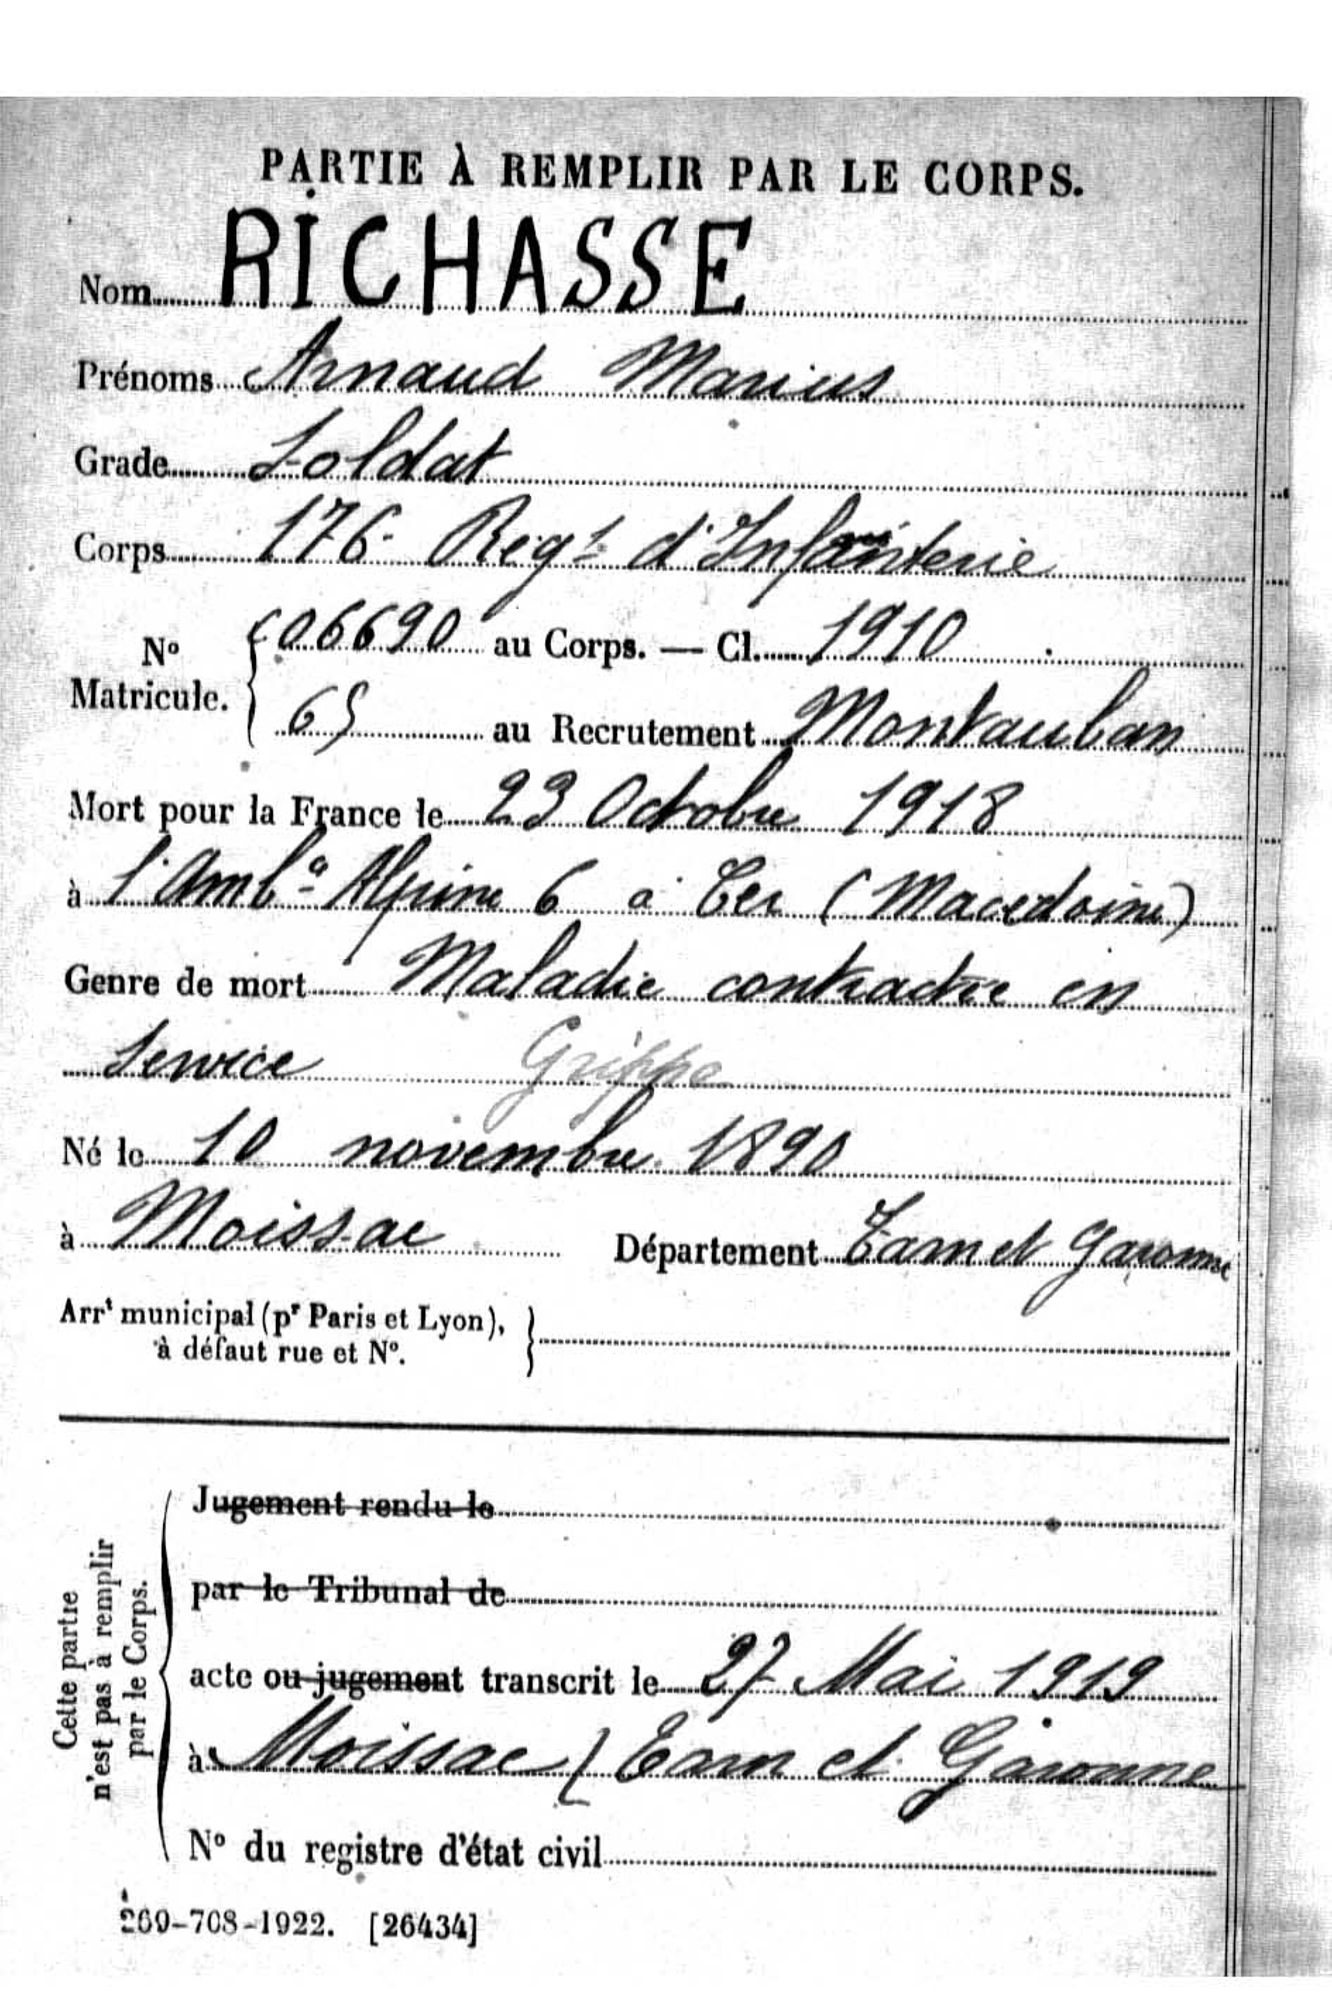 PARTIE À REMPLIR PAR LE CORPS.
Nom RICHASSE
Prénoms Arnaud Marius
Grade Soldat
Corps 176e Regt d'Infanterie
No Matricule. { 06690 au Corps. — Cl. 1910
65 au Recrutement Montauban
Mort pour la France le 23 Octobre 1918
à l'Ambce Alpine 6 à Cer (Macedoine)
Genre de mort Maladie contractée en
Service Grippe
Né le 10 novembre 1890
à Moissac Département Tarn et Garonne
Arrt municipal (pr Paris et Lyon), }
à défaut rue et No.
Cette partie
n'est pas à remplir
par le Corps.
Jugement rendu le
par le Tribunal de
acte ou jugement transcrit le 27 Mai 1919
à Moissac (Tarn et Garonne
No du registre d'état civil
269-708-1922. [26434]